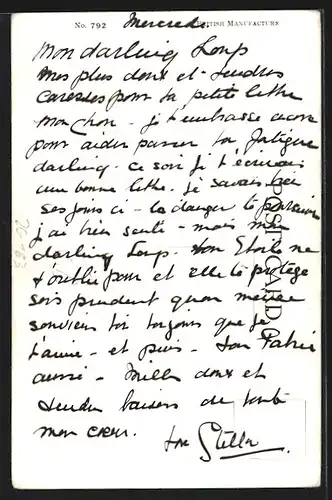 No. 792 Mercredi. British Manufacture
Mon darling Loup
Mes plus doux et tendres
caresses pour ta petite lettre
mon chou - je t'embrasse encore
pour aider passer ta fatigue
darling - ce soir je t'écrirai
une bonne lettre. Je savais bien
ces jours ci - le danger
j'ai bien senti - mais mon
darling Loup - ton Etoile ne
t'oublie pour et elle te protège
sois prudent quand même
souviens toi toujours que je
t'aime - et puis - ton Patrie
aussi - Mille doux et
tendres baisers de toute
mon cœur.
ton Stella
POST CARD